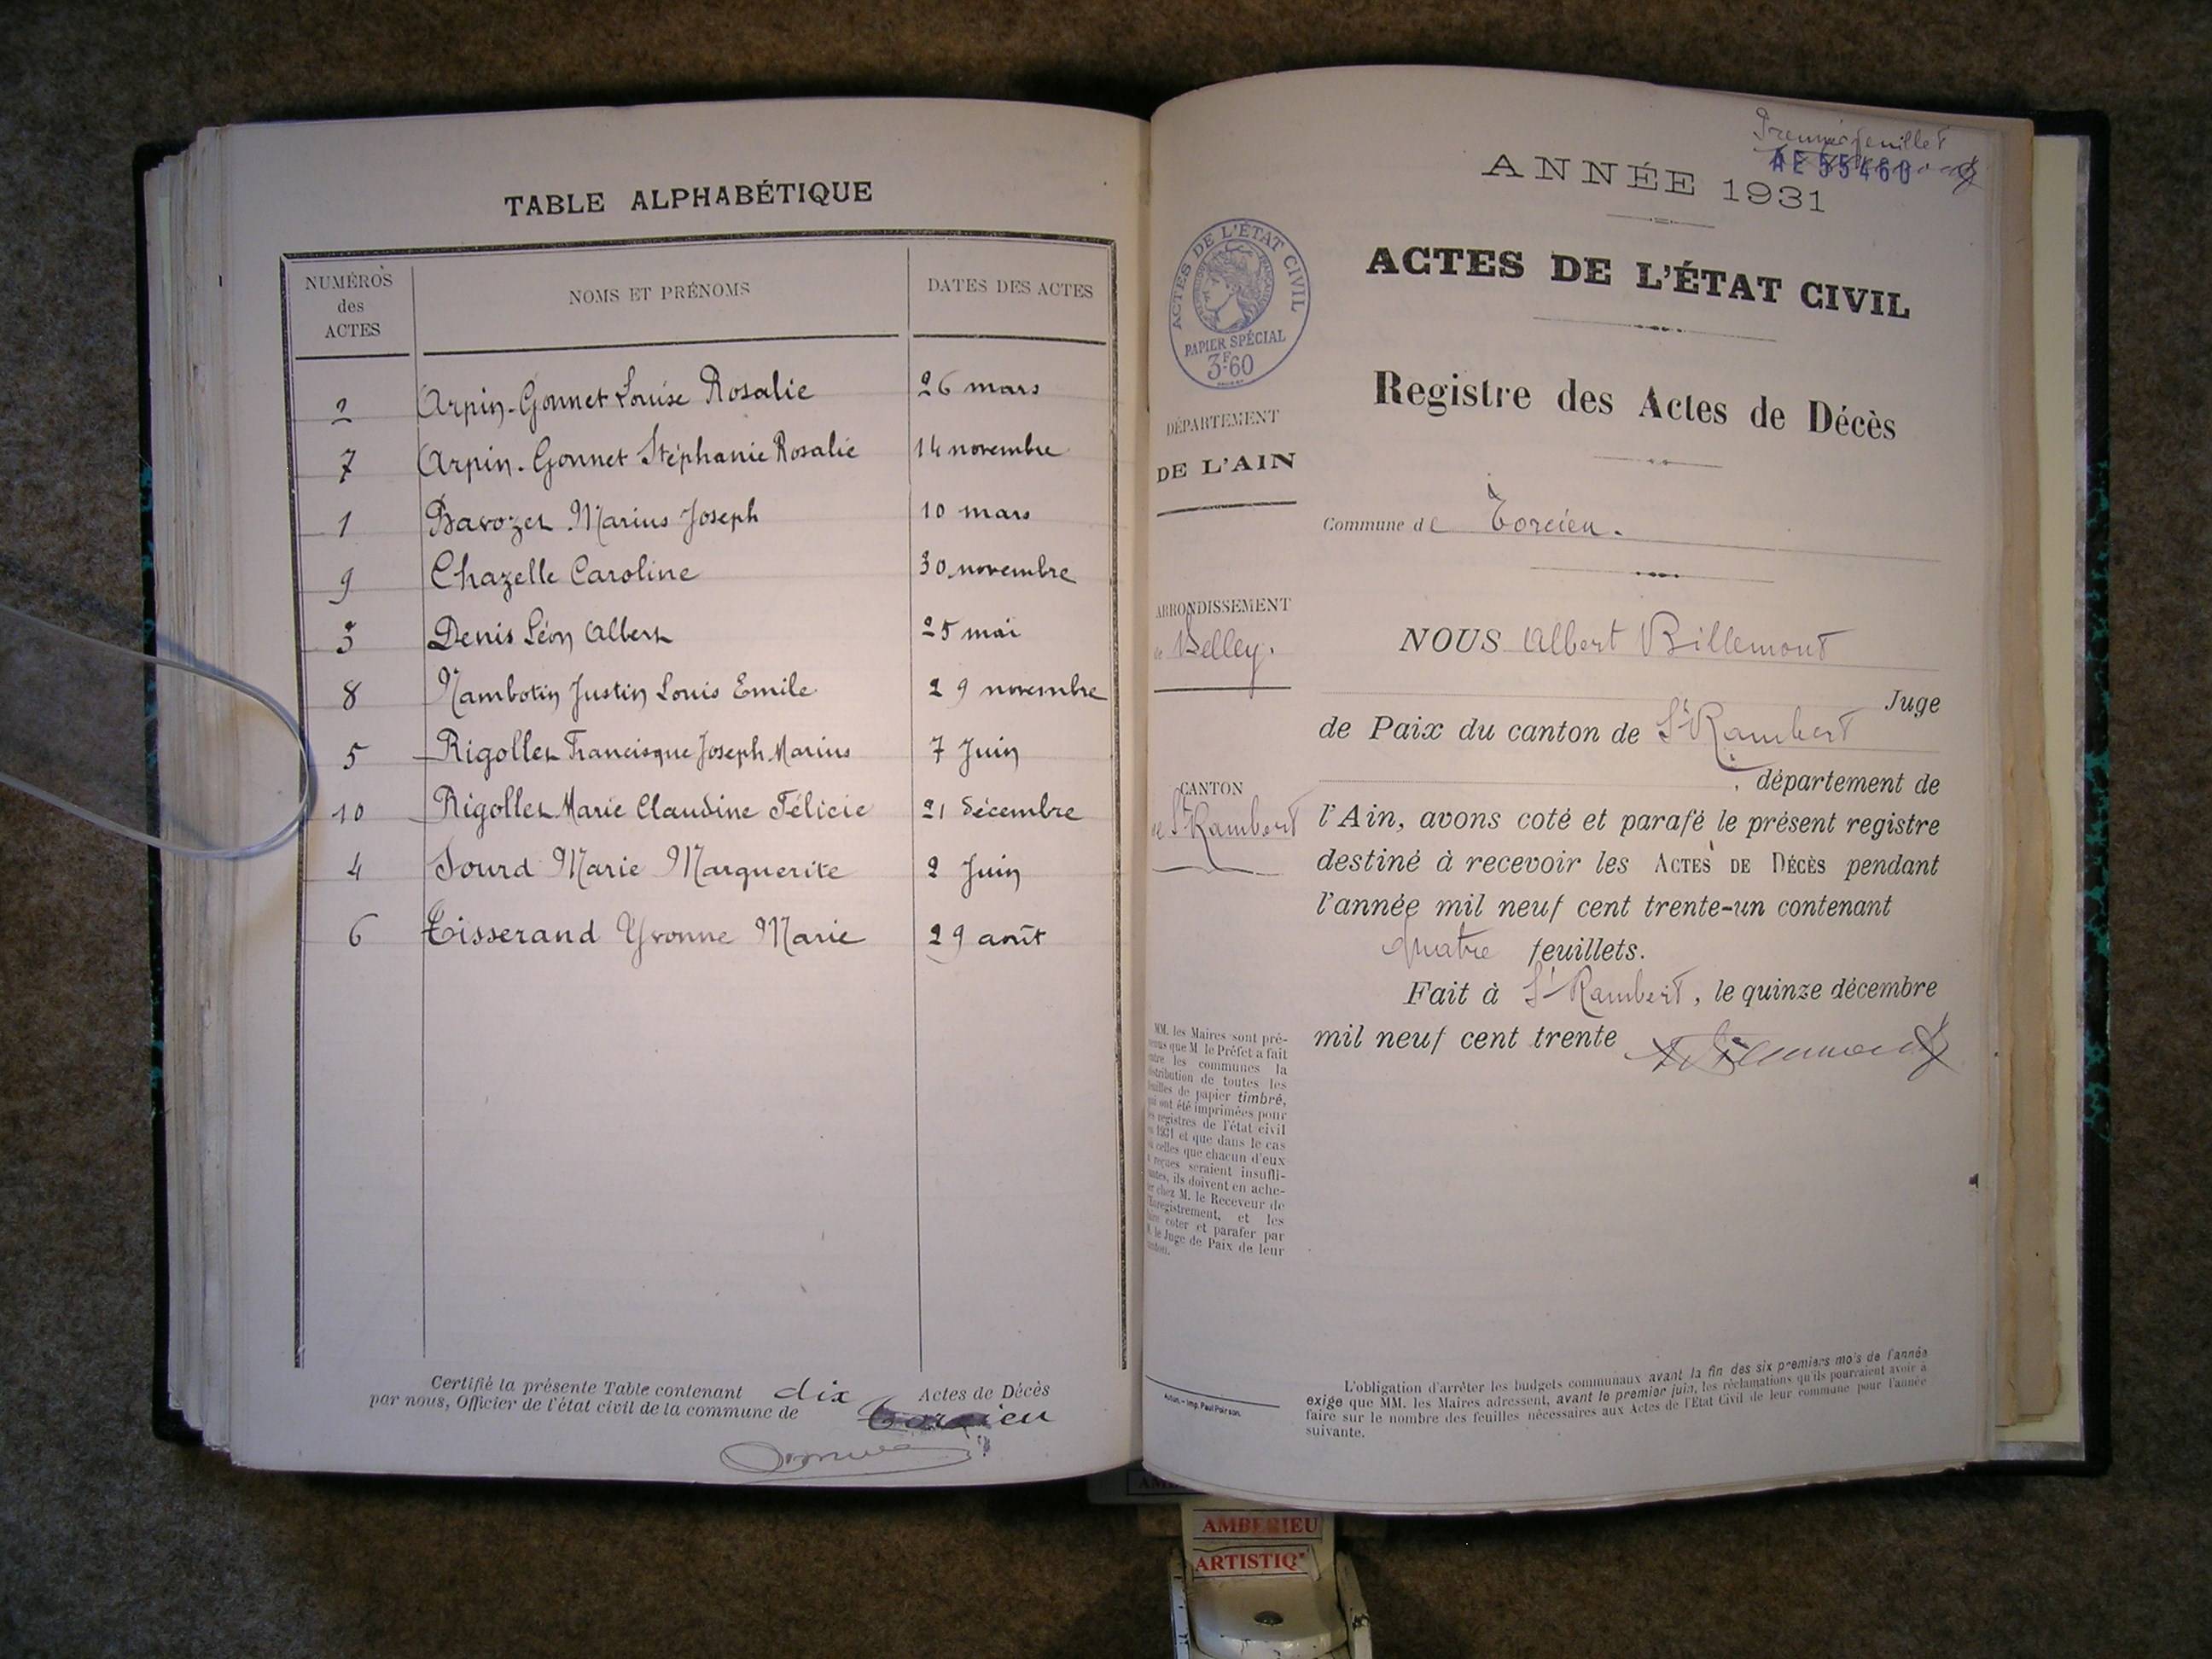 TABLE ALPHABÉTIQUE
NUMÉROS des ACTES NOMS ET PRÉNOMS DATES DES ACTES
2 Arpin-Gonnet Louise Rosalie 26 mars
7 Arpin-Gonnet Stéphanie Rosalie 14 novembre
1 Bavozet Marius Joseph 10 mars
9 Chazelle Caroline 30 novembre
3 Denis Léon Albert 25 mai
8 Nambotin Justin Louis Emile 29 novembre
5 Rigollet Francisque Joseph Marius 7 Juin
10 Rigollet Marie Claudine Félicie 21 décembre
4 Sourd Marie Marguerite 2 Juin
6 Tisserand Yvonne Marie 29 août
Certifié la présente Table contenant dix Actes de Décès
par nous, Officier de l'état civil de la commune de Torcieu
Premier feuillet
AE 55460
ANNÉE 1931
ACTES DE L'ÉTAT CIVIL
PAPIER SPÉCIAL
3F60
ACTES DE L'ÉTAT CIVIL
Registre des Actes de Décès
DÉPARTEMENT
DE L'AIN
Commune de Torcieu.
ARRONDISSEMENT
de Belley.
CANTON
de St Rambert
NOUS Albert Billemont
Juge
de Paix du canton de St Rambert
, département de
l'Ain, avons coté et parafé le présent registre
destiné à recevoir les ACTES DE DÉCÈS pendant
l'année mil neuf cent trente-un contenant
quatre feuillets.
Fait à St Rambert, le quinze décembre
mil neuf cent trente
MM. les Maires sont pré-
venus que M le Préfet a fait
entre les communes la
distribution de toutes les
feuilles de papier timbré,
qui ont été imprimées pour
les registres de l'état civil
en 1931 et que dans le cas
où celles que chacun d'eux
a reçues seraient insuffi-
santes, ils doivent en ache-
ter chez M. le Receveur de
l'Enregistrement, et les
faire coter et parafer par
M. le Juge de Paix de leur
canton.
L'obligation d'arrêter les budgets communaux avant la fin des six premiers mois de l'année
exige que MM. les Maires adressent, avant le premier juin, les réclamations qu'ils pourraient avoir à
faire sur le nombre des feuilles nécessaires aux Actes de l'État Civil de leur commune pour l'année
suivante.
Imp. Paul Poirson.
AMBERIEU
ARTISTIQ'